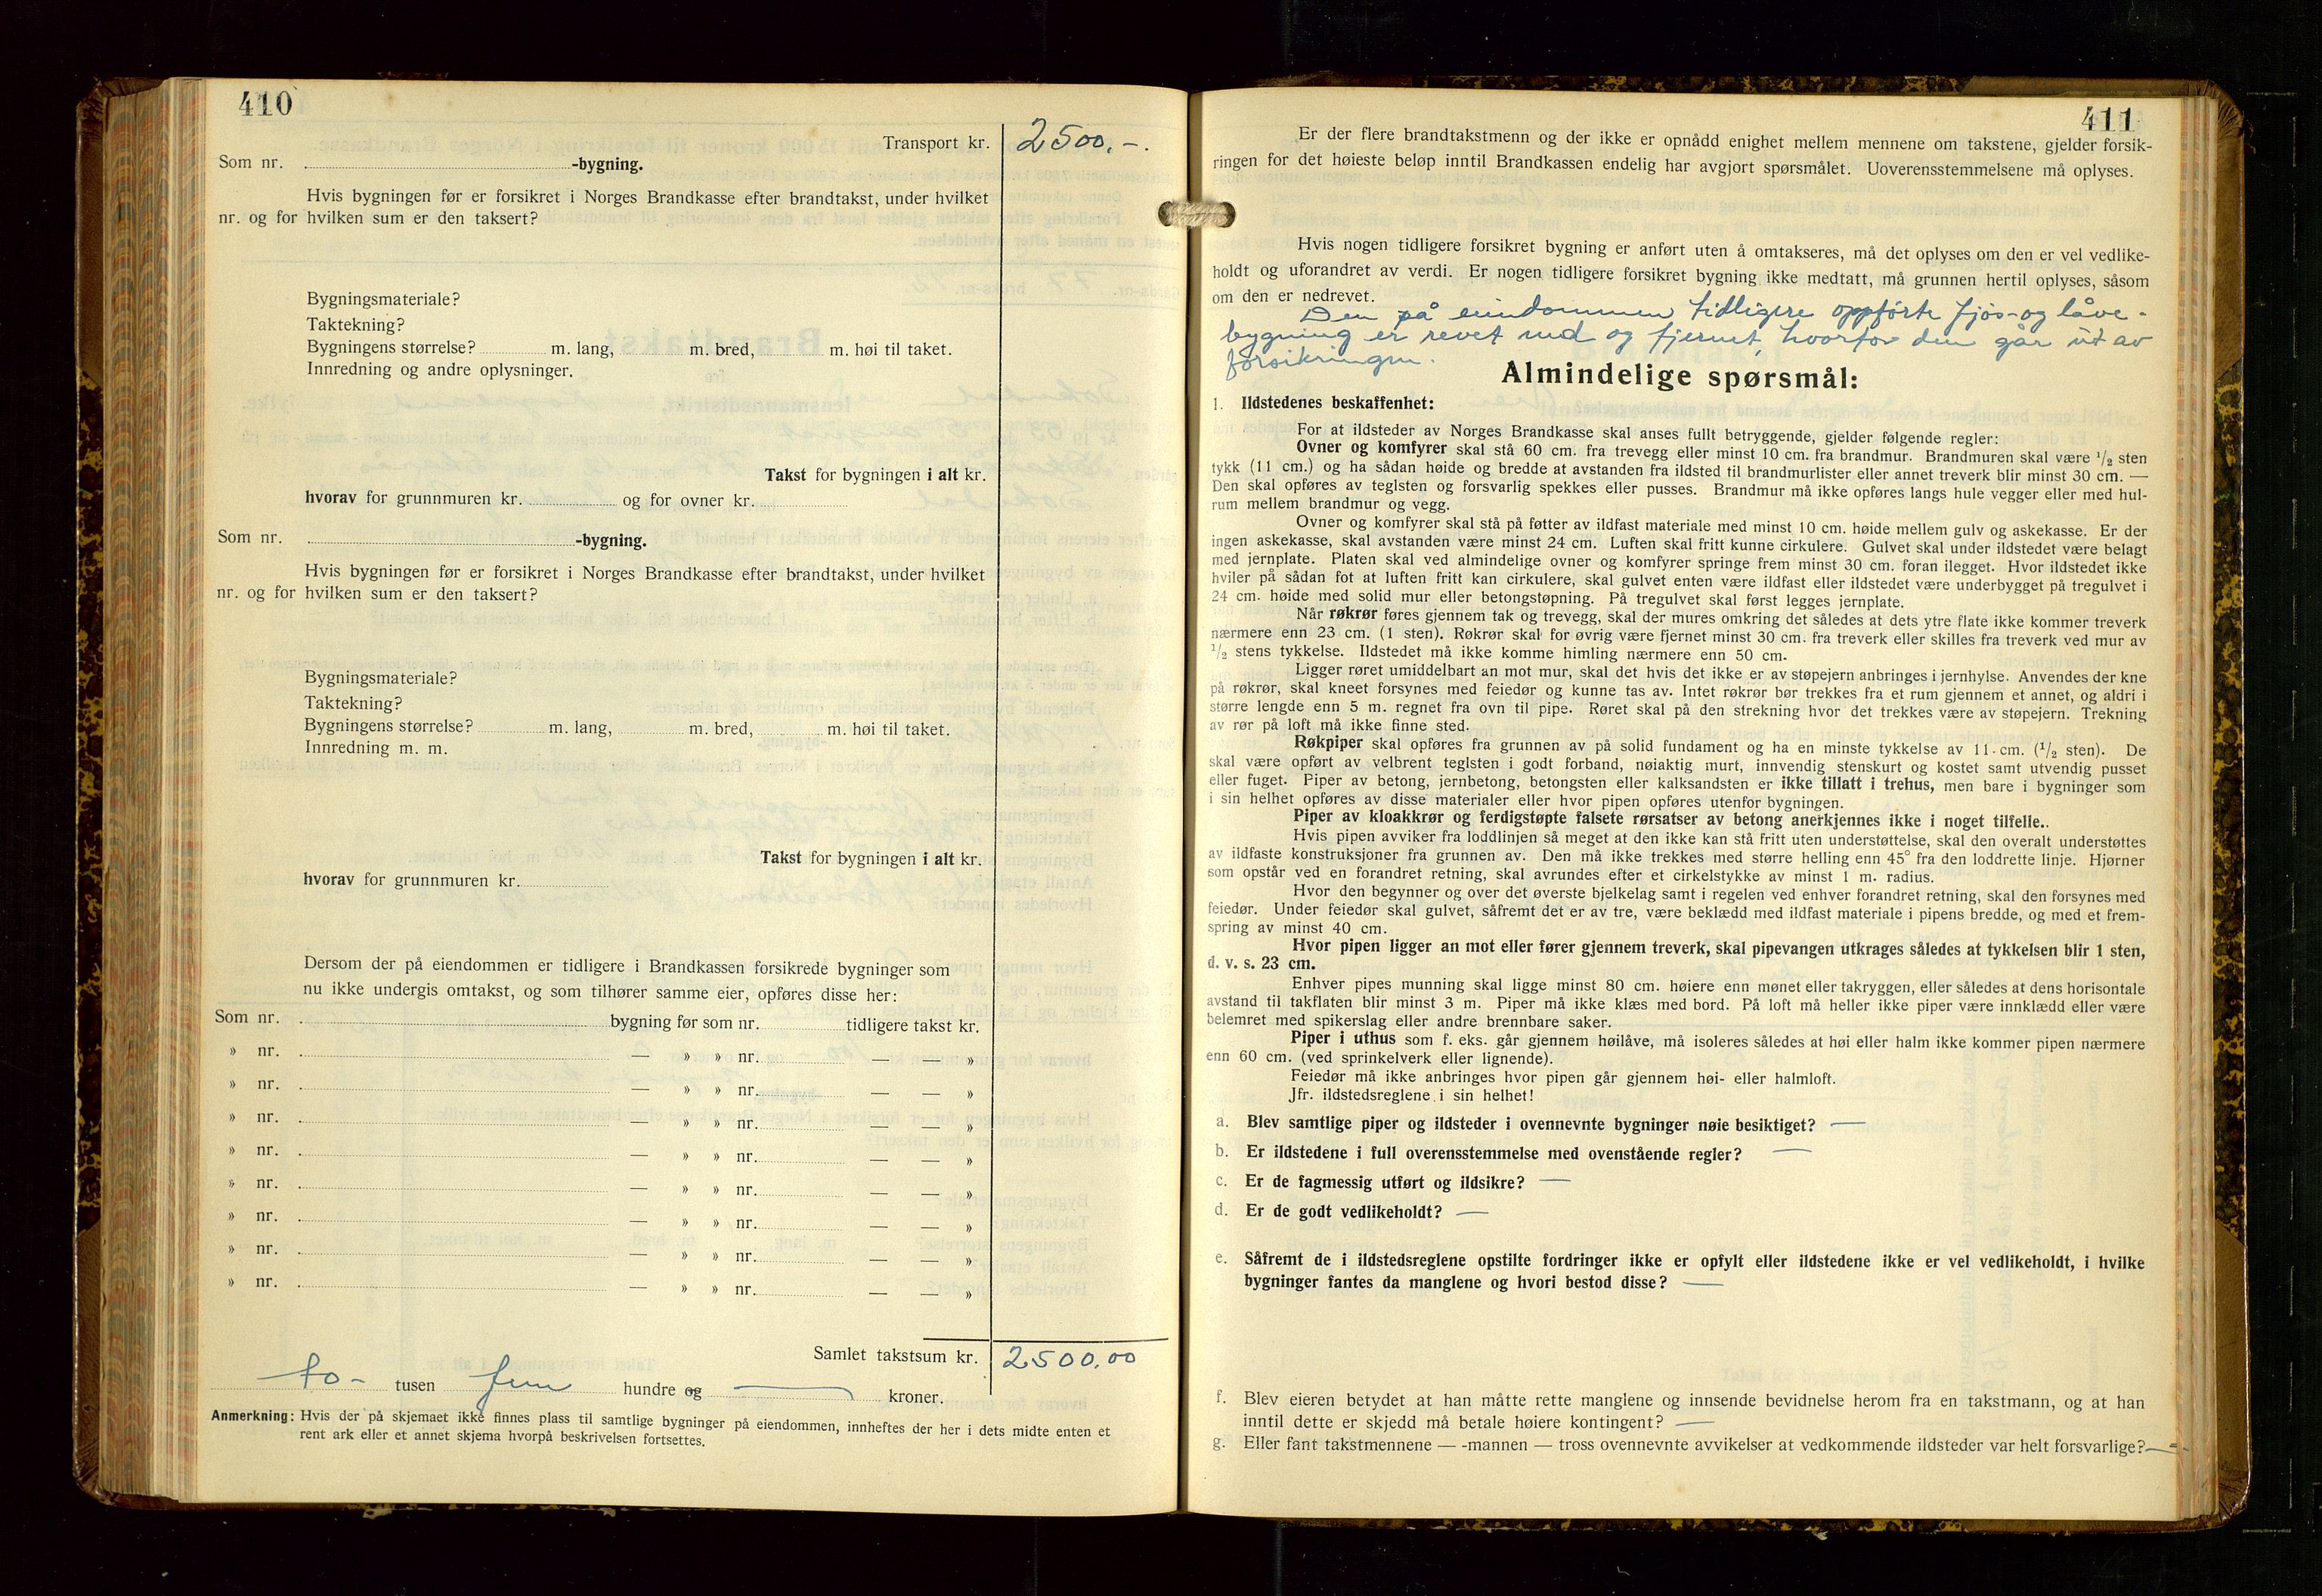 410
Transport kr. 2500,-.
Som nr. -bygning.
Hvis bygningen før er forsikret i Norges Brandkasse efter brandtakst, under hvilket
nr. og for hvilken sum er den taksert?
Bygningsmateriale?
Taktekning?
Bygningens størrelse? m. lang, m. bred, m. høi til taket.
Innredning og andre oplysninger.
Takst for bygningen i alt kr.
hvorav for grunnmuren kr. og for ovner kr.
Som nr. -bygning.
Hvis bygningen før er forsikret i Norges Brandkasse efter brandtakst, under hvilket
nr. og for hvilken sum er den taksert?
Bygningsmateriale?
Taktekning?
Bygningens størrelse? m. lang, m. bred, m. høi til taket.
Innredning m. m.
Takst for bygningen i alt kr.
hvorav for grunnmuren kr.
Dersom der på eiendommen er tidligere i Brandkassen forsikrede bygninger som
nu ikke undergis omtakst, og som tilhører samme eier, opføres disse her:
Som nr. bygning før som nr. tidligere takst kr.
» nr. — » » nr. — — »
» nr. — » » nr. — — »
» nr. — » » nr. — — »
» nr. — » » nr. — — »
» nr. — » » nr. — — »
» nr. — » » nr. — — »
» nr. — » » nr. — — »
» nr. — » » nr. — — »
Samlet takstsum kr. 2500,00
to- tusen fem hundre og — kroner.
Anmerkning: Hvis der på skjemaet ikke finnes plass til samtlige bygninger på eiendommen, innheftes der her i dets midte enten et
rent ark eller et annet skjema hvorpå beskrivelsen fortsettes.
411
Er der flere brandtakstmenn og der ikke er opnådd enighet mellem mennene om takstene, gjelder forsik-
ringen for det høieste beløp inntil Brandkassen endelig har avgjort spørsmålet. Uoverensstemmelsene må oplyses.
Hvis nogen tidligere forsikret bygning er anført uten å omtakseres, må det oplyses om den er vel vedlike-
holdt og uforandret av verdi. Er nogen tidligere forsikret bygning ikke medtatt, må grunnen hertil oplyses, såsom
om den er nedrevet.
Den på eiendommen tidligere oppførte fjøs- og låve-
bygning er revet ned og fjernet, hvorfor den går ut av
forsikringen.
Almindelige spørsmål:
1. Ildstedenes beskaffenhet:
For at ildsteder av Norges Brandkasse skal anses fullt betryggende, gjelder følgende regler:
Ovner og komfyrer skal stå 60 cm. fra trevegg eller minst 10 cm. fra brandmur. Brandmuren skal være 1/2 sten
tykk (11 cm.) og ha sådan høide og bredde at avstanden fra ildsted til brandmurlister eller annet treverk blir minst 30 cm. —
Den skal opføres av teglsten og forsvarlig spekkes eller pusses. Brandmur må ikke opføres langs hule vegger eller med hul-
rum mellem brandmur og vegg.
Ovner og komfyrer skal stå på føtter av ildfast materiale med minst 10 cm. høide mellem gulv og askekasse. Er der
ingen askekasse, skal avstanden være minst 24 cm. Luften skal fritt kunne cirkulere. Gulvet skal under ildstedet være belagt
med jernplate. Platen skal ved almindelige ovner og komfyrer springe frem minst 30 cm. foran ilegget. Hvor ildstedet ikke
hviler på sådan fot at luften fritt kan cirkulere, skal gulvet enten være ildfast eller ildstedet være underbygget på tregulvet i
24 cm. høide med solid mur eller betongstøpning. På tregulvet skal først legges jernplate.
Når røkrør føres gjennem tak og trevegg, skal der mures omkring det således at dets ytre flate ikke kommer treverk
nærmere enn 23 cm. (1 sten). Røkrør skal for øvrig være fjernet minst 30 cm. fra treverk eller skilles fra treverk ved mur av
1/2 stens tykkelse. Ildstedet må ikke komme himling nærmere enn 50 cm.
Ligger røret umiddelbart an mot mur, skal det hvis det ikke er av støpejern anbringes i jernhylse. Anvendes der kne
på røkrør, skal kneet forsynes med feiedør og kunne tas av. Intet røkrør bør trekkes fra et rum gjennem et annet, og aldri i
større lengde enn 5 m. regnet fra ovn til pipe. Røret skal på den strekning hvor det trekkes være av støpejern. Trekning
av rør på loft må ikke finne sted.
Røkpiper skal opføres fra grunnen av på solid fundament og ha en minste tykkelse av 11 cm. (1/2 sten). De
skal være opført av velbrent teglsten i godt forband, nøiaktig murt, innvendig stenskurt og kostet samt utvendig pusset
eller fuget. Piper av betong, jernbetong, betongsten eller kalksandsten er ikke tillatt i trehus, men bare i bygninger som
i sin helhet opføres av disse materialer eller hvor pipen opføres utenfor bygningen.
Piper av kloakkrør og ferdigstøpte falsete rørsatser av betong anerkjennes ikke i noget tilfelle..
Hvis pipen avviker fra loddlinjen så meget at den ikke kan stå fritt uten understøttelse, skal den overalt understøttes
av ildfaste konstruksjoner fra grunnen av. Den må ikke trekkes med større helling enn 45° fra den loddrette linje. Hjørner
som opstår ved en forandret retning, skal avrundes efter et cirkelstykke av minst 1 m. radius.
Hvor den begynner og over det øverste bjelkelag samt i regelen ved enhver forandret retning, skal den forsynes med
feiedør. Under feiedør skal gulvet, såfremt det er av tre, være beklædd med ildfast materiale i pipens bredde, og med et frem-
spring av minst 40 cm.
Hvor pipen ligger an mot eller fører gjennem treverk, skal pipevangen utkrages således at tykkelsen blir 1 sten,
d. v. s. 23 cm.
Enhver pipes munning skal ligge minst 80 cm. høiere enn mønet eller takryggen, eller således at dens horisontale
avstand til takflaten blir minst 3 m. Piper må ikke klæs med bord. På loft må heller ikke piper være innklædd eller være
belemret med spikerslag eller andre brennbare saker.
Piper i uthus som f. eks. går gjennem høilåve, må isoleres således at høi eller halm ikke kommer pipen nærmere
enn 60 cm. (ved sprinkelverk eller lignende).
Feiedør må ikke anbringes hvor pipen går gjennem høi- eller halmloft.
Jfr. ildstedsreglene i sin helhet!
a. Blev samtlige piper og ildsteder i ovennevnte bygninger nøie besiktiget? —
b. Er ildstedene i full overensstemmelse med ovenstående regler? —
c. Er de fagmessig utført og ildsikre? —
d. Er de godt vedlikeholdt? —
e. Såfremt de i ildstedsreglene opstilte fordringer ikke er opfylt eller ildstedene ikke er vel vedlikeholdt, i hvilke
bygninger fantes da manglene og hvori bestod disse? —
f. Blev eieren betydet at han måtte rette manglene og innsende bevidnelse herom fra en takstmann, og at han
inntil dette er skjedd må betale høiere kontingent? —
g. Eller fant takstmennene — -mannen — tross ovennevnte avvikelser at vedkommende ildsteder var helt forsvarlige? —